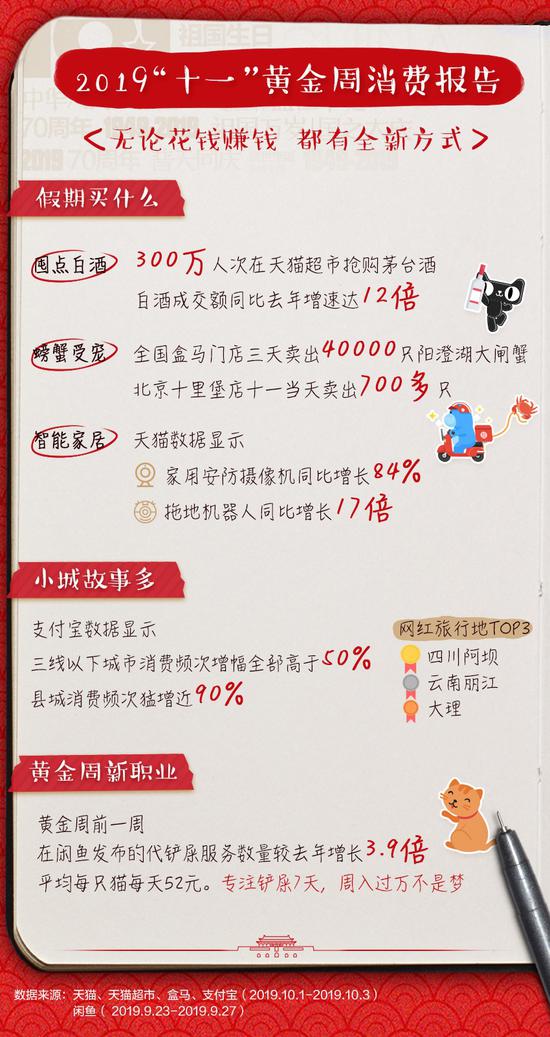 祖国生日
70周年
2019 70周年
2019“十一”黄金周消费报告
<无论花钱赚钱 都有全新方式>
假期买什么
囤点白酒
300万人次在天猫超市抢购茅台酒
白酒成交额同比去年增速达12倍
螃蟹受宠
全国盒马门店三天卖出40000只阳澄湖大闸蟹
北京十里堡店十一当天卖出700多只
智能家居
天猫数据显示
家用安防摄像机同比增长84%
拖地机器人同比增长17倍
小城故事多
支付宝数据显示
三线以下城市消费频次增幅全部高于50%
县城消费频次猛增近90%
网红旅行地TOP3
四川阿坝
云南丽江
大理
黄金周新职业
黄金周前一周
在闲鱼发布的代铲屎服务数量较去年增长3.9倍
平均每只猫每天52元。专注铲屎7天，周入过万不是梦
数据来源：天猫、天猫超市、盒马、支付宝（2019.10.1-2019.10.3）
闲鱼（ 2019.9.23-2019.9.27）